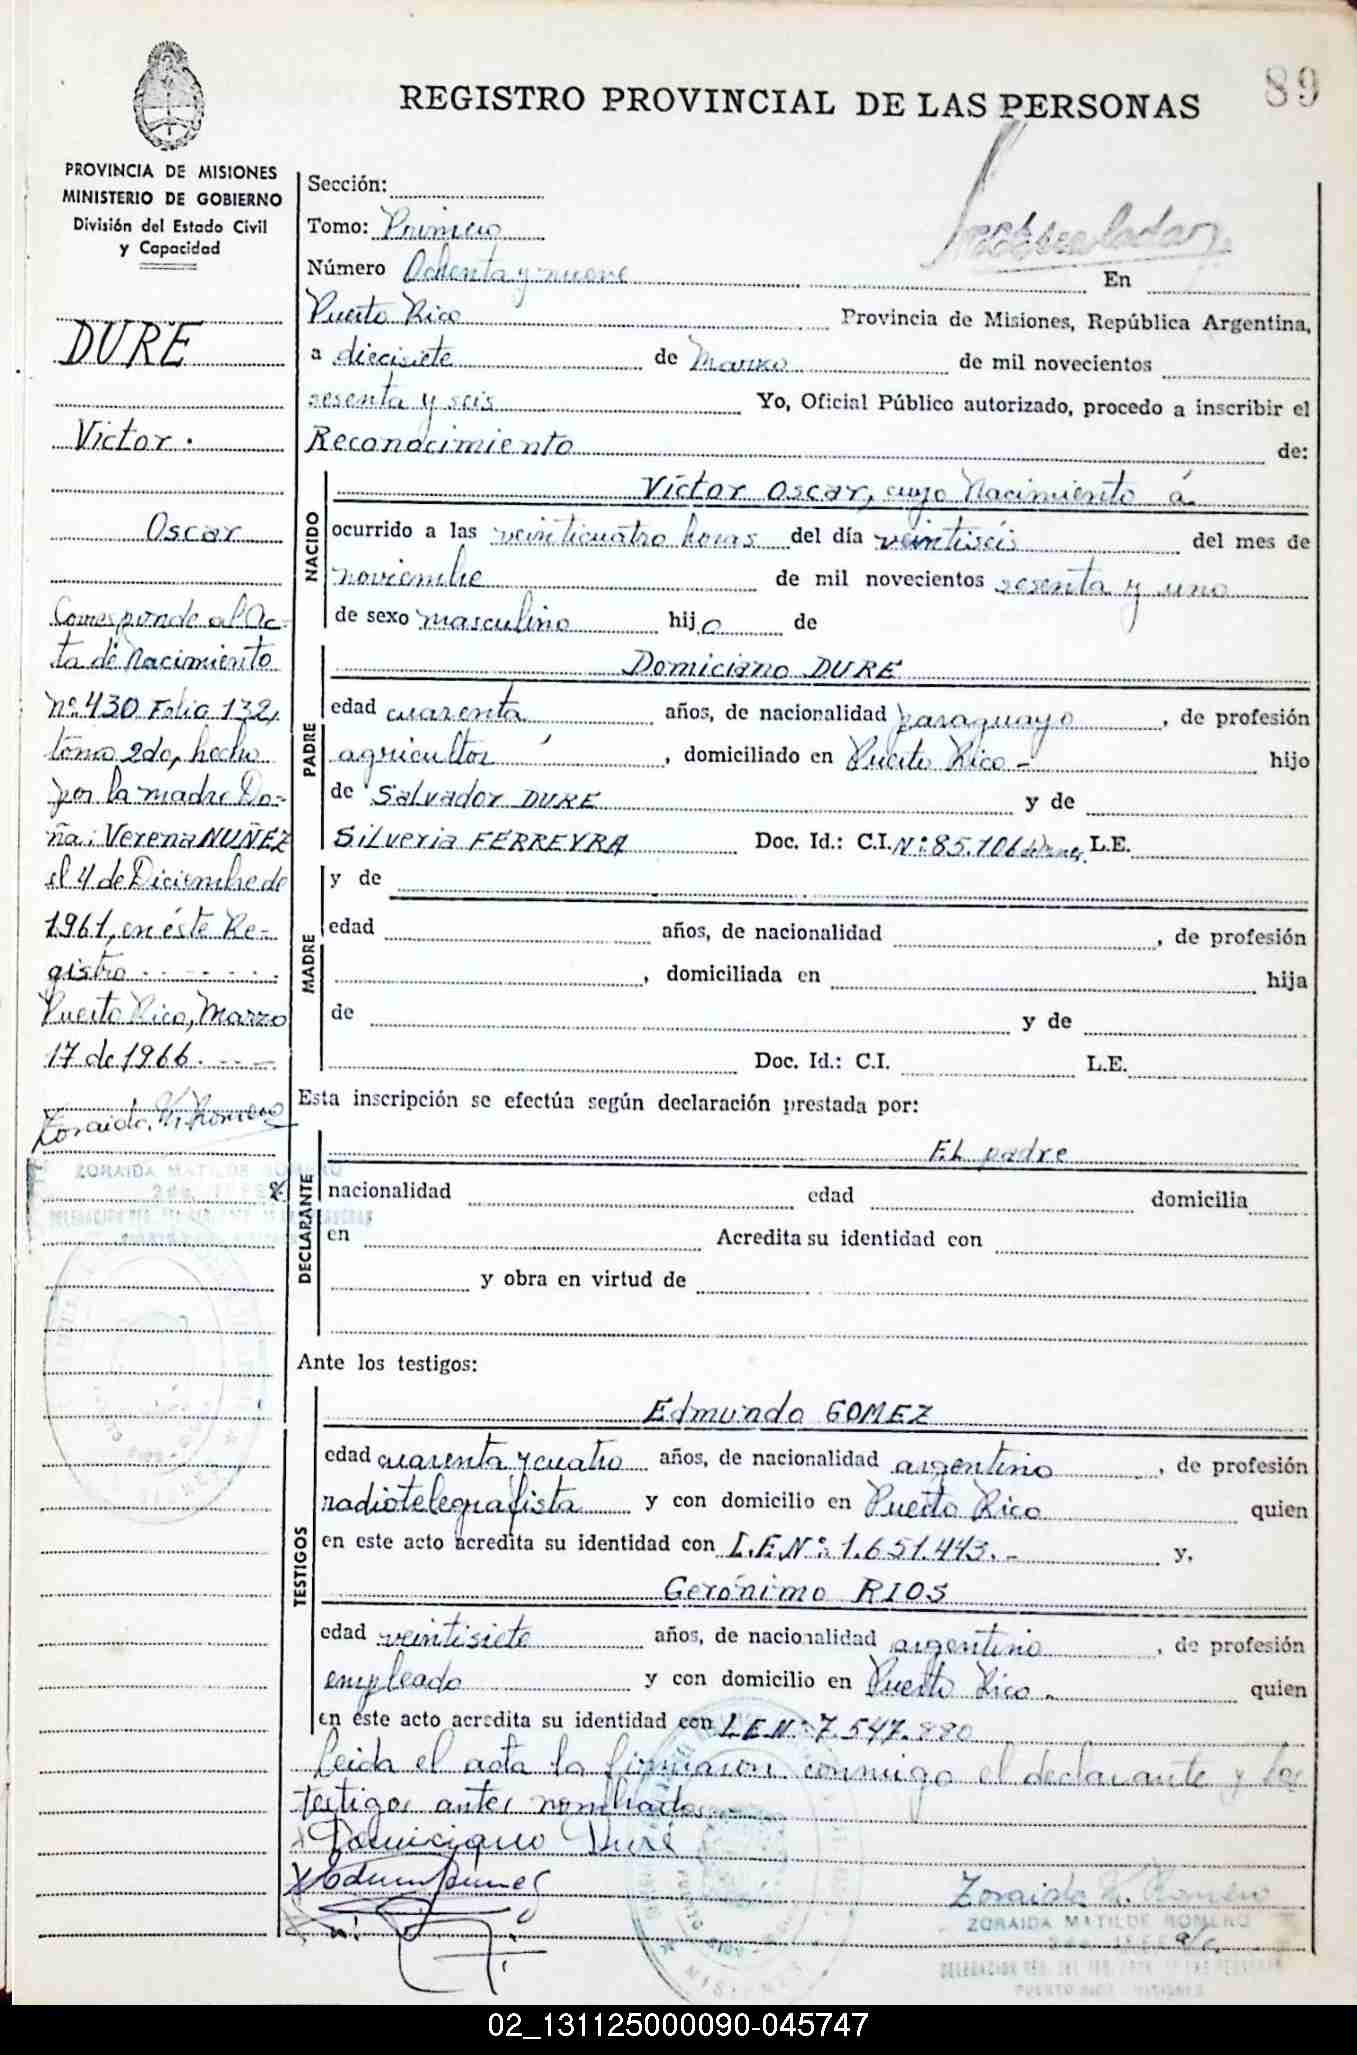 89
REGISTRO PROVINCIAL DE LAS PERSONAS
PROVINCIA DE MISIONES
MINISTERIO DE GOBIERNO
División del Estado Civil
y Capacidad
DURE
Victor.
Oscar
Corresponde al Ac-
ta de Nacimiento
nº 430 Folio 132,
tomo 2do, hecho
por la madre Do-
ña: Verena NUÑEZ
el 4 de Diciembre de
1961, en éste Re-
gistro
Puerto Rico, Marzo
17 de 1966.
Zoraida M. Romero
ZORAIDA MATILDE ROMERO
Sección:
Tomo: Primero
Número Ochenta y nueve
En
Puerto Rico Provincia de Misiones, República Argentina,
a diecisiete de Marzo de mil novecientos
sesenta y seis Yo, Oficial Público autorizado, procedo a inscribir el
Reconocimiento de:
NACIDO
Víctor Oscar, cuyo Nacimiento á
ocurrido a las veinticuatro horas del día veintiseis del mes de
noviembre de mil novecientos sesenta y uno
de sexo masculino hijo de
PADRE
Domiciano DURE
edad cuarenta años, de nacionalidad paraguayo, de profesión
agricultor, domiciliado en Puerto Rico - hijo
de Salvador DURE y de
Silveria FERREYRA Doc. Id.: C.I. Nº: 85.106 L.E.
MADRE
y de
edad años, de nacionalidad , de profesión
, domiciliada en hija
de y de
Doc. Id.: C.I. L.E.
Esta inscripción se efectúa según declaración prestada por:
DECLARANTE
El padre
nacionalidad edad domicilia
en Acredita su identidad con
y obra en virtud de
Ante los testigos:
TESTIGOS
Edmundo GOMEZ
edad cuarenta y cuatro años, de nacionalidad argentino, de profesión
radiotelegrafista y con domicilio en Puerto Rico quien
en este acto acredita su identidad con L.E.Nº: 1.651.443.- y,
Gerónimo RIOS
edad veintisiete años, de nacionalidad argentino, de profesión
empleado y con domicilio en Puerto Rico - quien
en este acto acredita su identidad con L E Nº: 7.547.880
Leida el acta la firmaron conmigo el declarante y los
testigos antes nombrados
Domiciano Duré
Zoraida M. Romero
ZORAIDA MATILDE ROMERO
PUERTO RICO - MISIONES
02_131125000090-045747